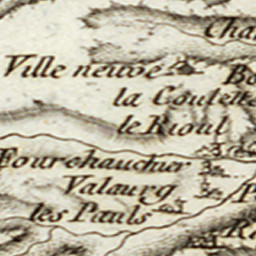 Cha
Ville neuve
la Coulette
le Rioul
Fourchauchier
Valaurg
les Pauls